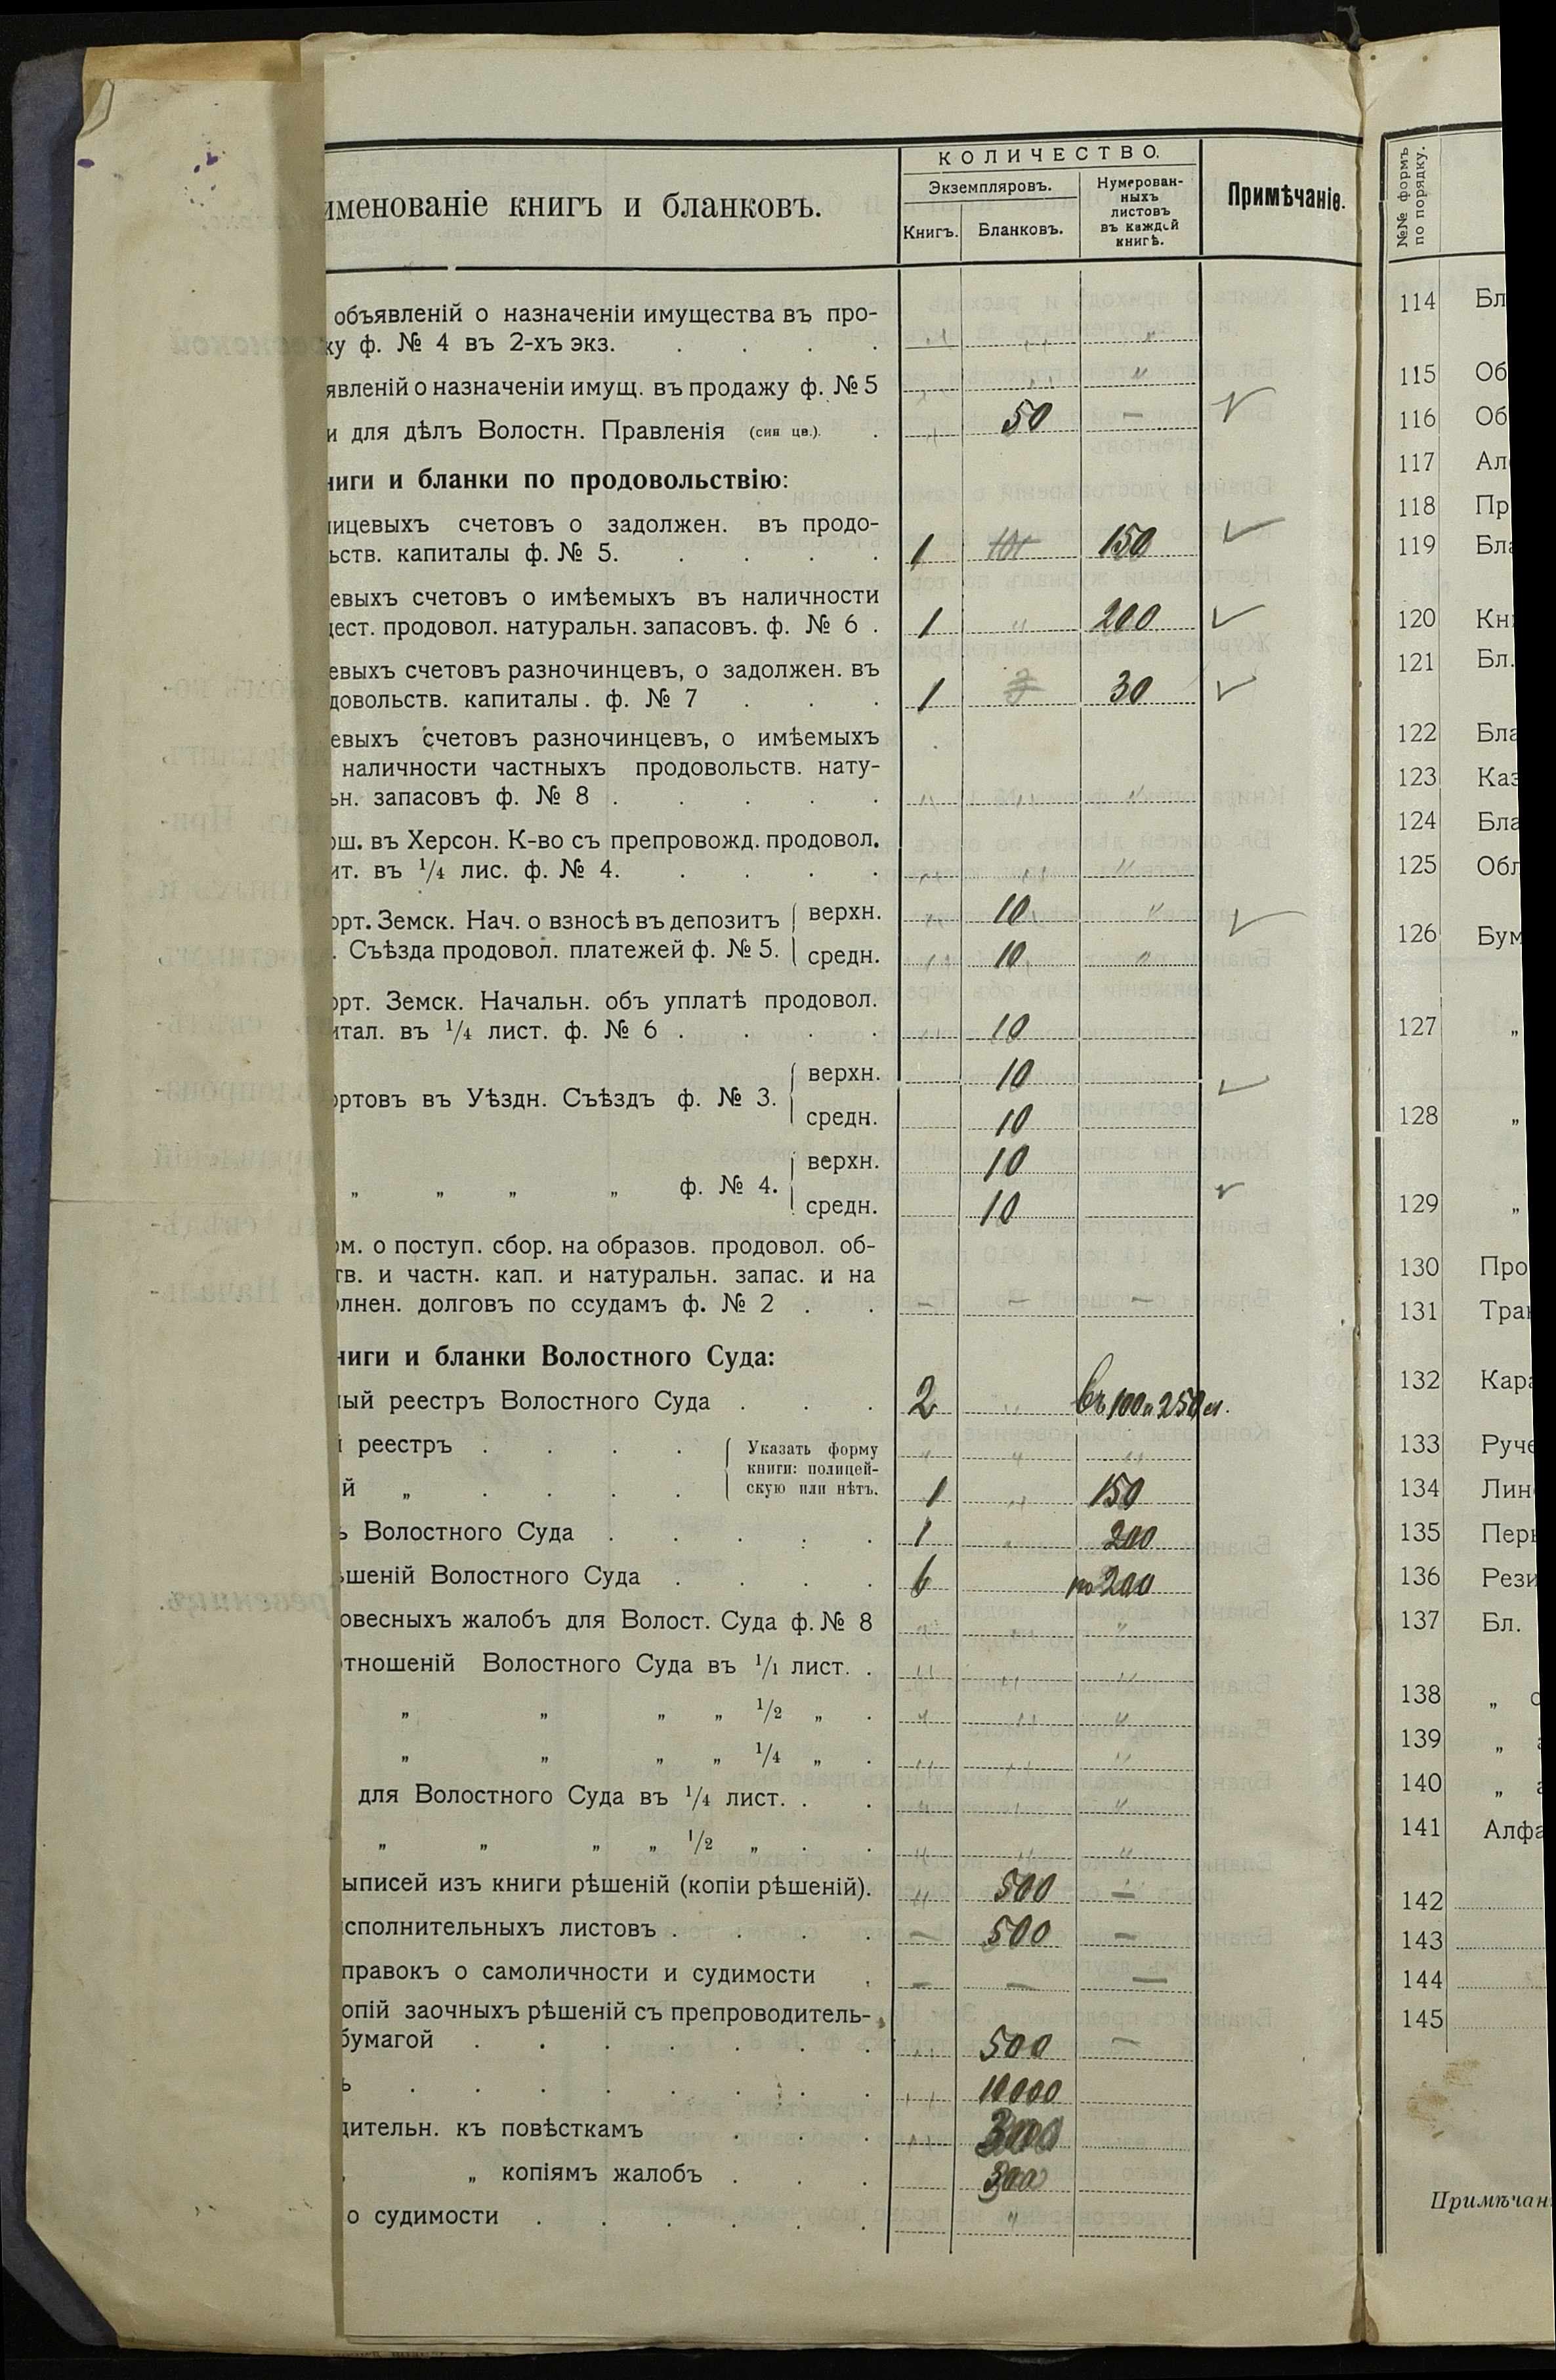 именованіе книгъ и бланковъ.
КОЛИЧЕСТВО.
Экземпляровъ.
Книгъ.
Бланковъ.
Нумерован-
ныхъ
листовъ
въ каждой
книгѣ.
Примѣчаніе.
объявленій о назначеніи имущества въ про-
жу ф. № 4 въ 2-хъ экз. . . . . „ „ „
явленій о назначеніи имущ. въ продажу ф. № 5 „ „ „
и для дѣлъ Волостн. Правленія (син. цв.). . „ 50 —
ниги и бланки по продовольствію:
лицевыхъ счетовъ о задолжен. въ продо-
ьств. капиталы ф. № 5. . . . . 1 150
евыхъ счетовъ о имѣемыхъ въ наличности
цест. продовол. натуральн. запасовъ. ф. № 6 . 1 „ 200
евыхъ счетовъ разночинцевъ, о задолжен. въ
довольств. капиталы . ф. № 7 . . . 1 30
евыхъ счетовъ разночинцевъ, о имѣемыхъ
наличности частныхъ продовольств. нату-
ьн. запасовъ ф. № 8 . . . . . „ „ „
ош. въ Херсон. К-во съ препровожд. продовол.
ит. въ 1/4 лис. ф. № 4. . . . . „ „ „
орт. Земск. Нач. о взносѣ въ депозитъ верхн. „ 10 „
. Съѣзда продовол. платежей ф. № 5. средн. „ 10 „
орт. Земск. Начальн. объ уплатѣ продовол.
итал. въ 1/4 лист. ф. № 6 . . . . „ 10
верхн. 10
ортовъ въ Уѣздн. Съѣздъ ф. № 3.
средн. 10
верхн. 10
„ „ „ „ ф. № 4.
средн. 10
ом. о поступ. сбор. на образов. продовол. об-
тв. и частн. кап. и натуральн. запас. и на
олнен. долговъ по ссудамъ ф. № 2 . . — — —
ниги и бланки Волостного Суда:
ный реестръ Волостного Суда . . . 2 „ въ 100 и 250 л.
й реестръ . . . . Указать форму „ „ „
книги: полицей-
й „ . . . . скую или нѣтъ. 1 „ 150
ъ Волостного Суда . . . . . 1 „ 200
ѣшеній Волостного Суда . . . . 6 по 200
овесныхъ жалобъ для Волост. Суда ф. № 8 „ „ „
отношеній Волостного Суда въ 1/1 лист. . „ „ „
„ „ „ „ 1/2 „ . „ „ „
„ „ „ „ 1/4 „ . „ „ „
для Волостного Суда въ 1/4 лист. . . „ „ „
„ „ „ „ 1/2 „ . . „ „ „
ыписей изъ книги рѣшеній (копіи рѣшеній). „ 500 —
сполнительныхъ листовъ . . . . — 500 —
правокъ о самоличности и судимости . — — —
опій заочныхъ рѣшеній съ препроводитель-
бумагой . . . . . . . „ 500 —
ъ . . . . . . . . „ 10000
дительн. къ повѣсткамъ . . . „ 3000
„ копіямъ жалобъ . . . 300
о судимости . . . . . . „
№№ формъ
по порядку.
114 Бл
115 Об
116 Об
117 Ал
118 Пр
119 Бла
120 Кни
121 Бл.
122 Бла
123 Каз
124 Бла
125 Обл
126 Бум
127 „
128 „
129 „
130 Про
131 Тран
132 Кара
133 Руче
134 Лин
135 Перь
136 Рези
137 Бл.
138 „ о
139 „ а
140 „ а
141 Алфа
142
143
144
145
Примѣчан